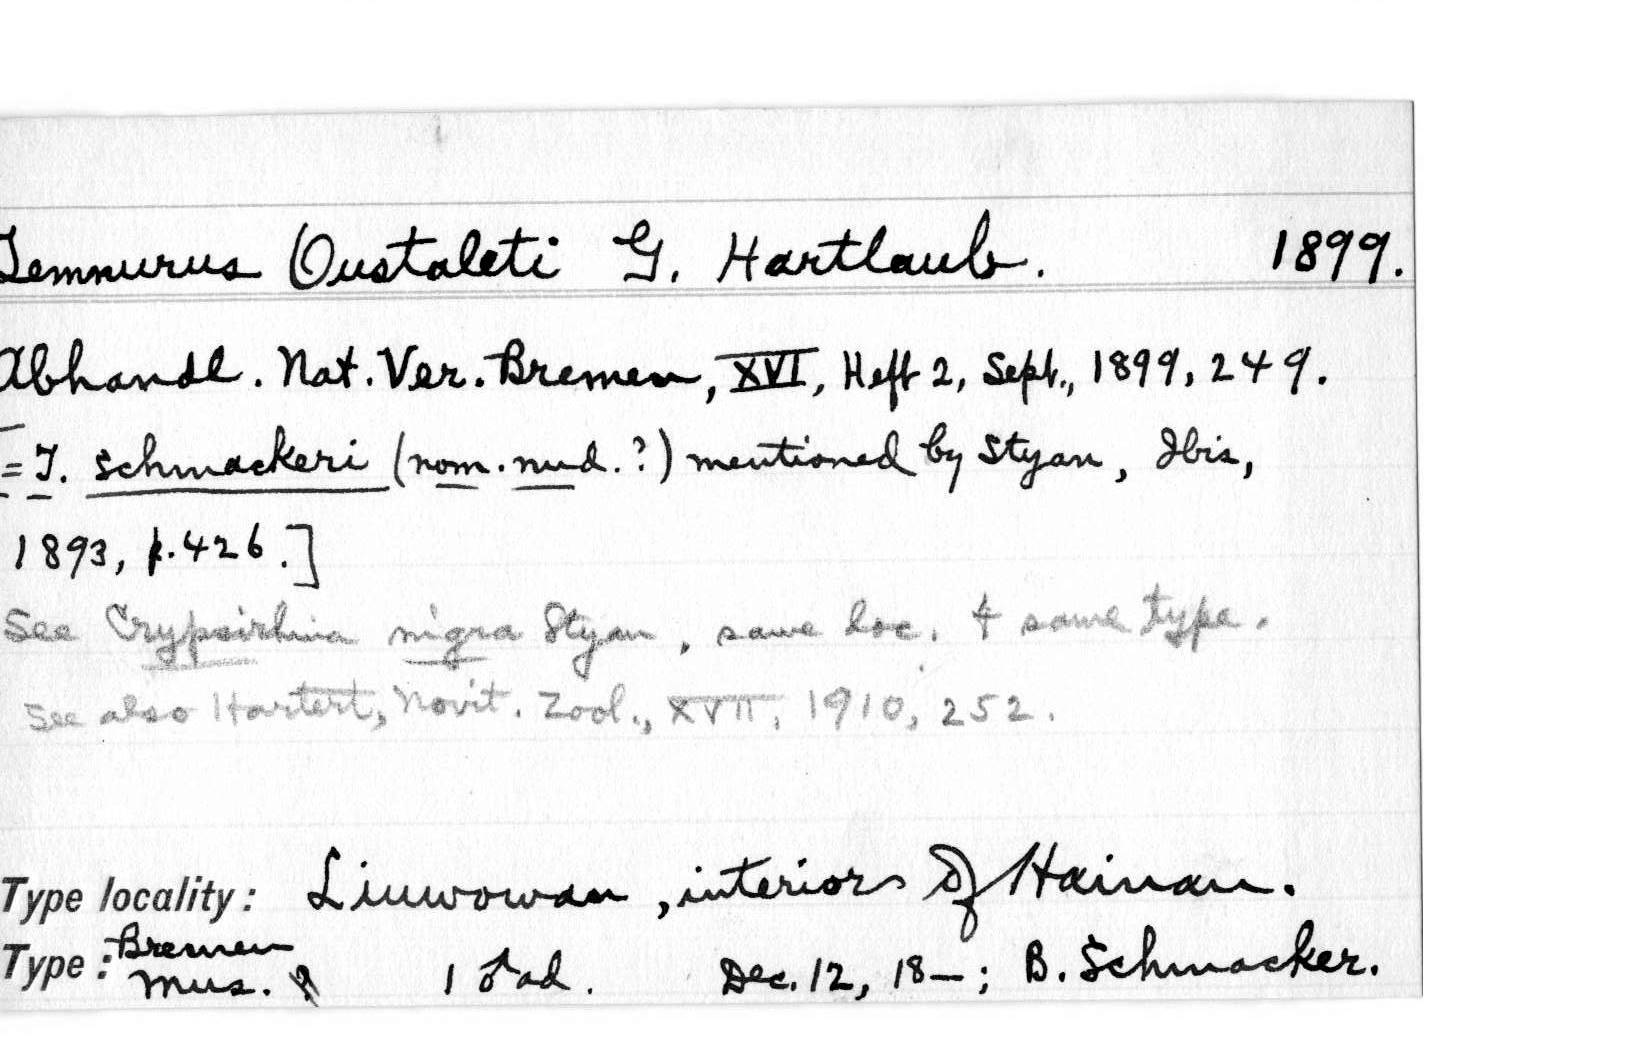 Temnurus Oustaleti G. Hartlaub. 1899.
Abhandl. Nat. Ver. Bremen, XVI, Heft 2, Sept., 1899, 249.
[= T. schmackeri (nom. nud.?) mentioned by Styan, Ibis,
1893, p. 426.]
See Crypsirhina nigra Styan, same loc. & same type.
See also Hartert, Novit. Zool., XVII, 1910, 252.
Type locality: Liuwowan, interior of Hainan.
Type: Bremen Mus. 1 ♂ ad. Dec. 12, 18—; B. Schmacker.